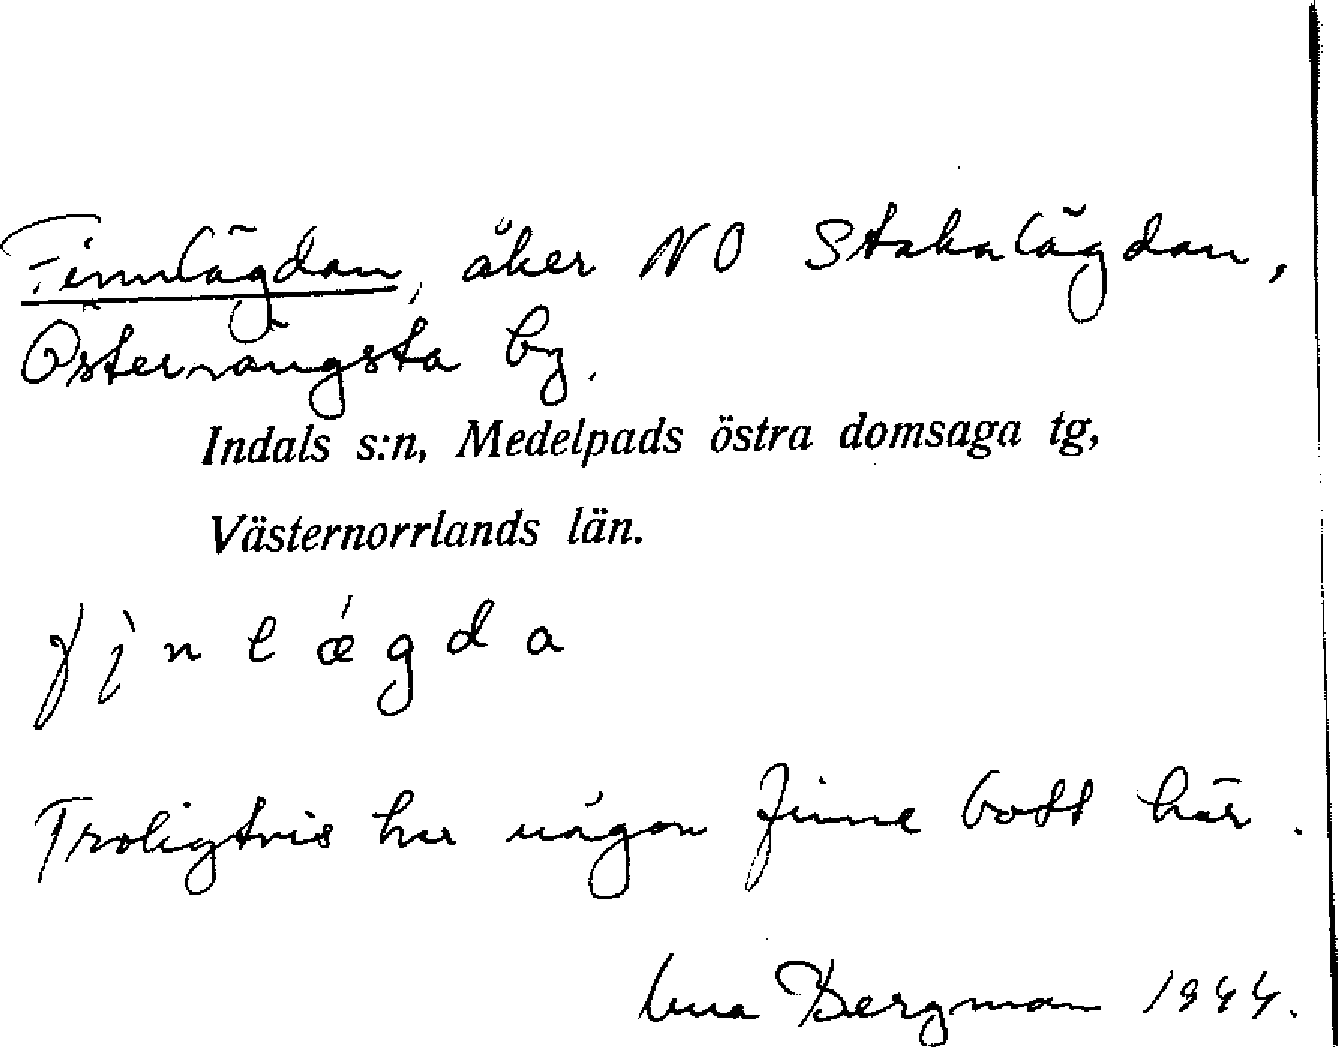 Finnlägdan, åker NO Stakalägdan,
Östervängsta by.
Indals s:n, Medelpads östra domsaga tg,
Västernorrlands län.
f ì n l ǽ g d a
Troligtvis har någon finne bott här.
Bergman 1944.